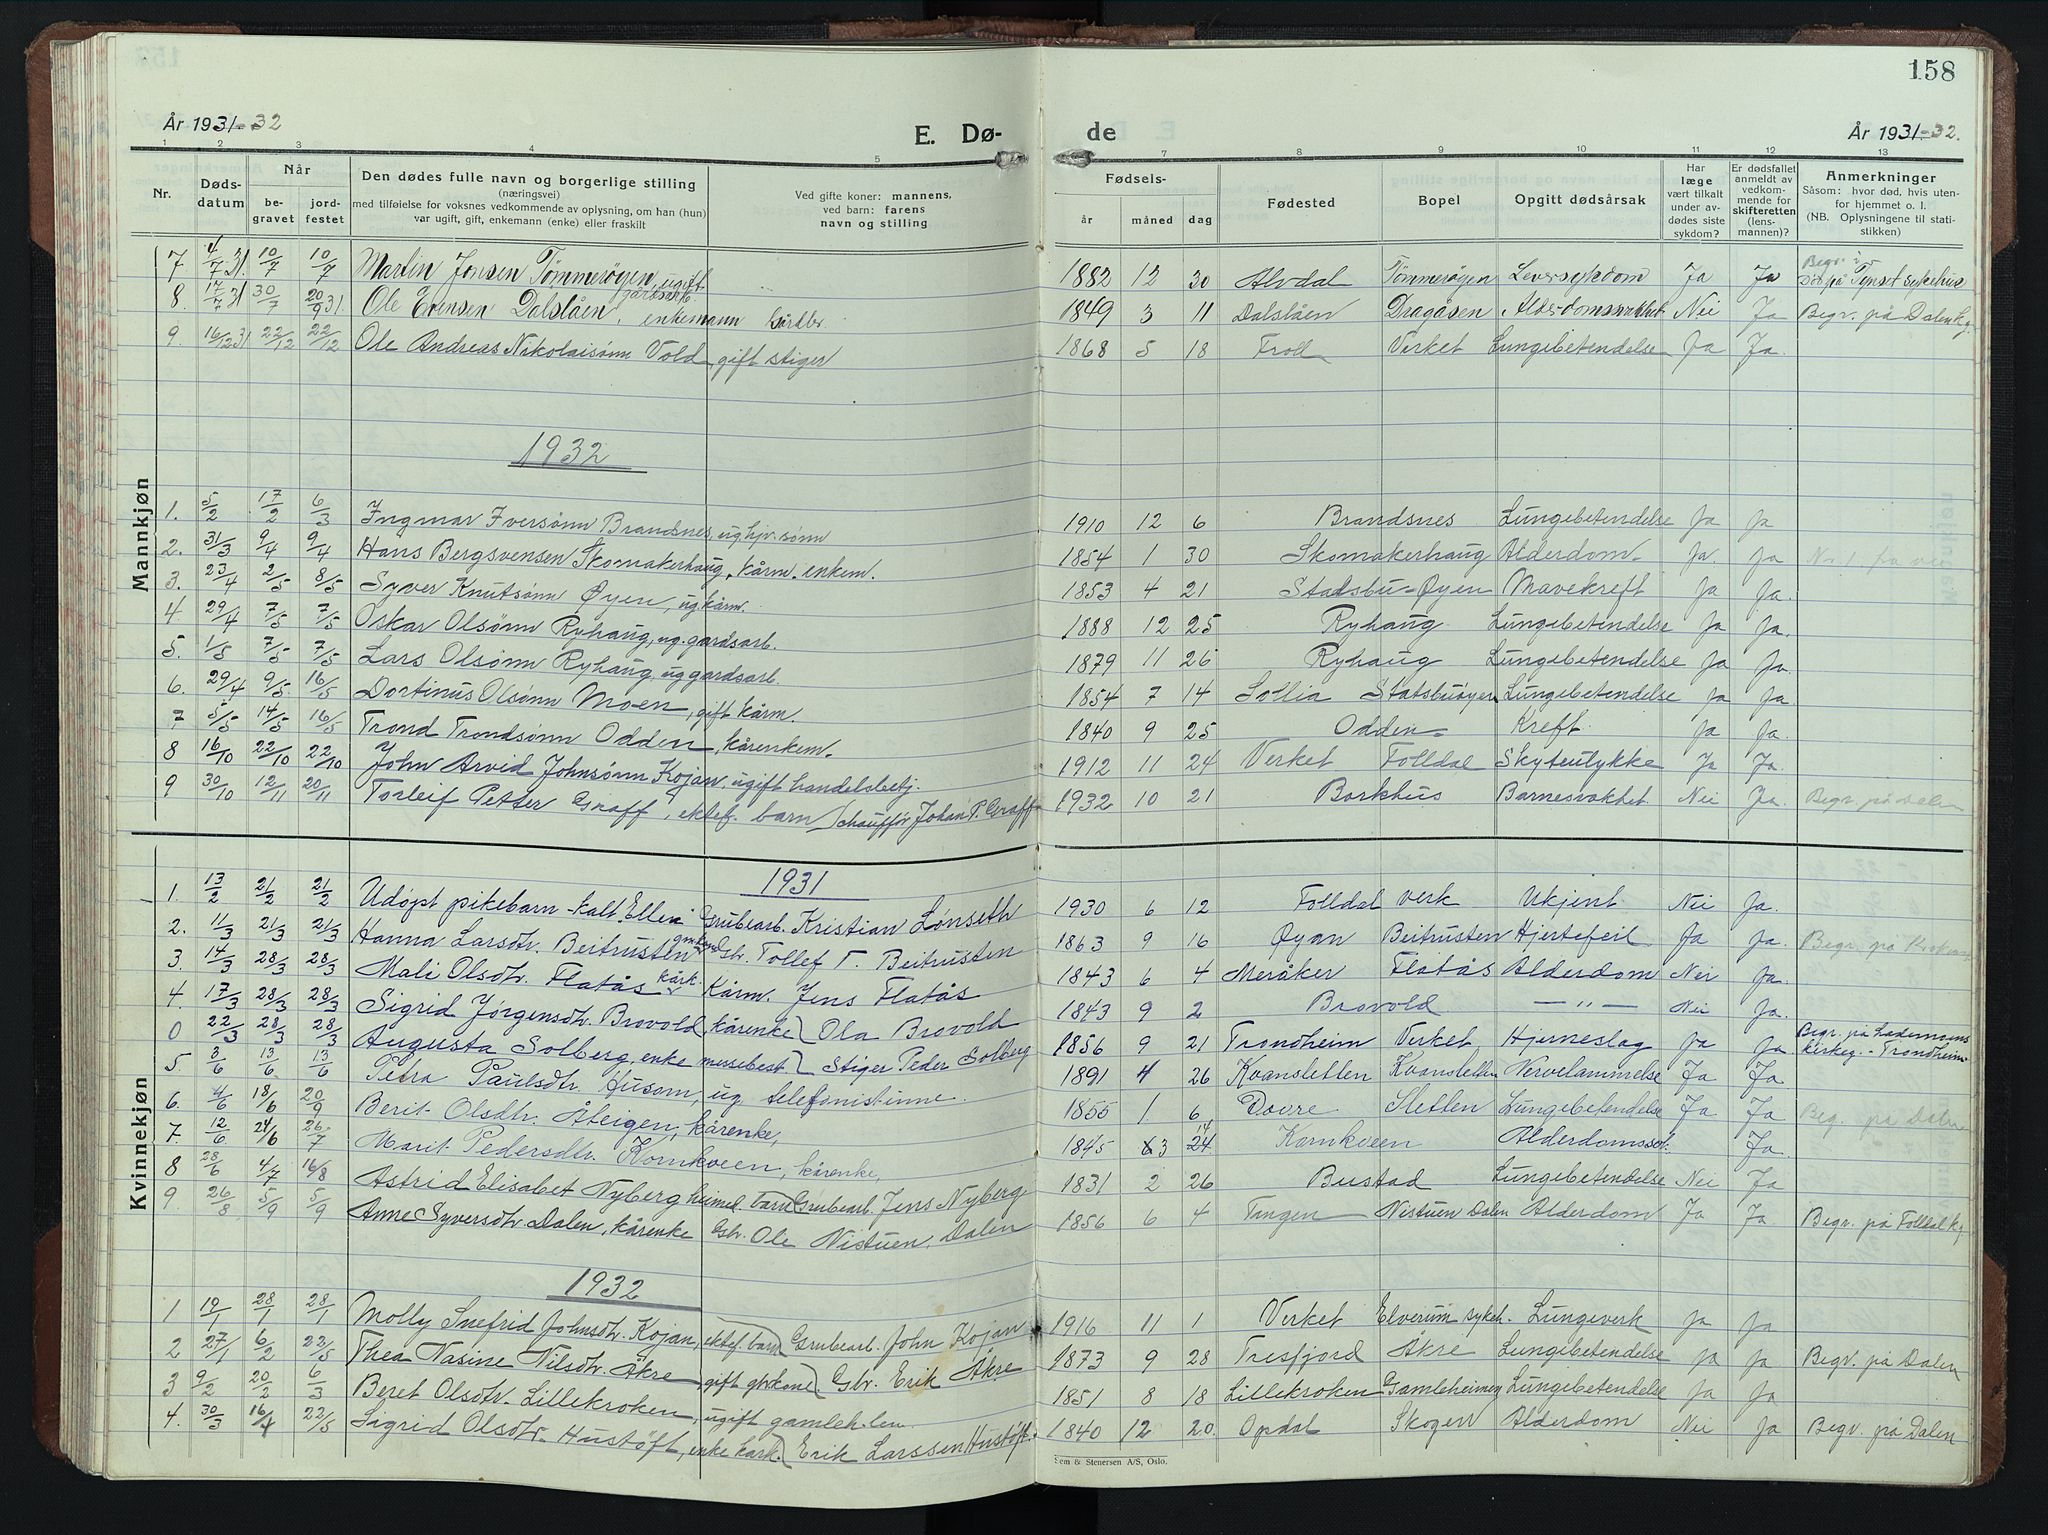 158
År 1931-32
E. Dø-
de
År 1931-32.
1 2 3 4 5 7 8 9 10 11 12 13
Nr.
Døds-
datum
Når
be-
gravet
jord-
festet
Den dødes fulle navn og borgerlige stilling
(næringsvei)
med tilføielse for voksnes vedkommende av oplysning, om han (hun)
var ugift, gift, enkemann (enke) eller fraskilt
Ved gifte koner: mannens,
ved barn: farens
navn og stilling
Fødsels-
år måned dag
Fødested
Bopel
Opgitt dødsårsak
Har
læge
vært tilkalt
under av-
dødes siste
sykdom?
Er dødsfallet
anmeldt av
vedkom-
mende for
skifteretten
(lens-
mannen)?
Anmerkninger
Såsom: hvor død, hvis uten-
for hjemmet o. l.
(NB. Oplysningene til stati-
stikken)
Mannkjøn
7. 4/7 31. 10/7 10/7 Martin Jonsen Tømmerøyen, ugift gårdsarb. 1882 12 30 Alvdal Tømmerøyen Leversykdom Ja Ja Død på Tynset sykehus
8. 17/7 31 30/7 20/9 31 Ole Evensen Dalslåen, enkemann Gårdbr. 1849 3 11 Dalslåen Dragåsen Alderdomssvakhet Nei Ja Begr. på Dalen Kg.
9. 16/12 31 22/12 22/12 Ole Andreas Nikolaisønn Vold, gift stiger 1868 5 18 Troll Verket Lungebetendelse Ja Ja.
1932
1. 5/2 17/2 6/3 Ingmar Iversønn Brandsnes, ug hjv. sønn 1910 12 6 Brandsnes Lungebetendelse Ja Ja
2. 31/3 9/4 9/4 Hans Bergsvensen Skomakerhaug, kårm. enkem. 1854 1 30 Skomakerhaug Alderdom Ja. Ja
3. 23/4 2/5 8/5 Syver Knutsønn Øyen, ug kårm. 1853 4 21 Stadsbu-Øyen Mavekreft Ja Ja.
4. 29/4 7/5 7/5 Oskar Olsønn Ryhaug, ug. gardsarb. 1888 12 25 Ryhaug Lungebetendelse Ja Ja.
5. 1/5 7/5 7/5 Lars Olsønn Ryhaug ug gardsarb. 1879 11 26 Ryhaug Lungebetendelse Ja Ja.
6. 29/4 9/5 16/5 Dortinus Olsønn Moen, gift kårm. 1854 7 14 Sollia Statsbuøyen Lungebetendelse Ja Ja.
7 5/5 14/5 16/5 Trond Trondsønn Odden, kårenkem. 1840 9 25 Odden Kreft. Ja Ja.
8 16/10 22/10 22/10 John Arvid Johnsønn Kojan, ugift handelsbetj. 1912 11 24 Verket Folldal Skyteulykke Ja Ja.
9 30/10 12/11 20/11 Torleif Petter Graff, ektef. barn (chauffør Johan P. Graff 1932 10 21 Borkhus Barnesvakhet Nei Ja. Begr. på Dalen
Kvinnekjøn
1931
1. 13/2 21/2 21/2 Udøpt pikebarn kalt Ellen Grubearb. Kristian Lønseth 1930 6 12 Folldal verk Ukjent. Nei Ja.
2. 11/3 21/3 21/3 Hanna Larsdtr. Beitrusten Gbr. Tollef T. Beitrusten 1863 9 16 Øyan Beitrusten Hjertefeil Ja Ja.
3. 14/3 28/3 28/3 Mali Olsdtr. Flatås kårk. Kårm. Jens Flatås 1843 6 4 Meråker Flatås Alderdom Nei Ja.
4. 17/3 28/3 28/3 Sigrid Jørgensdtr. Brovold kårenke) Ola Brovold 1843 9 2 Brovold —"— Nei Ja.
0 22/3 28/3 28/3 Augusta Solberg, enke messebest.) Stiger Peder Solberg 1856 9 21 Trondheim Verket Hjerneslag Ja Ja Begr. på Lademoens kirkeg. - Trondheim
5. 8/6 13/6 13/6 Petra Paulsdtr. Husom, ug telefonistinne. 1891 4 26 Kvansletten Kvansletten Nervelammelse Ja Ja
6. 4/6 18/6 20/9 Berit Olsdtr. Åteigen, kårenke, 1855 1 6 Dovre Sletten Lungebetendelse Ja Ja Begr. på Dalen
7. 12/6 24/6 26/7 Marit Pedersdtr. Kornkveen, kårenke, 1845 3 24 Kornkveen Alderdomssv. Ja.
8 28/6 4/7 16/8 Astrid Elisabet Nyberg hemel. barn Grubearb. Jens Nyberg 1831 2 26 Bustad Lungebetendelse Nei Ja
9. 26/8 5/9 5/9 Anne Syversdtr Dalen, kårenke Gbr. Ole Nistuen Dalen 1856 6 4 Tangen Nistuen Dalen Alderdom Ja Ja. Begr. på Folldal K.g
1932
1 19/1 28/1 28/1 Molly Snefrid Johnsdtr. Kojan, ektef. barn) Grubearb. John Kojan 1916 11 1 Verket Elverum sykeh. Lungeverk Ja Ja
2 27/1 6/2 22/5 Thea Nasine Nilsdtr. Åkre, gift gbrkone). Gbr. Erik Åkre 1873 9 28 Tresfjord Åkre Lungebetendelse Ja Ja Begr. på Dalen
3 9/2 20/2 6/3 Beret Olsdtr. Lillekroken, ugift gamleh.lem 1851 8 18 Lillekroken Gamleheimen Lungebetendelse Ja Ja
4. 30/3 16/4 22/5 Sigrid Olsdtr. Hustøft, enke kark.) Erik Larssen Hustøft. 1840 12 20. Opdal Skogen Alderdom Nei Ja Begr. på Dalen
Sem & Stenersen A/S, Oslo.